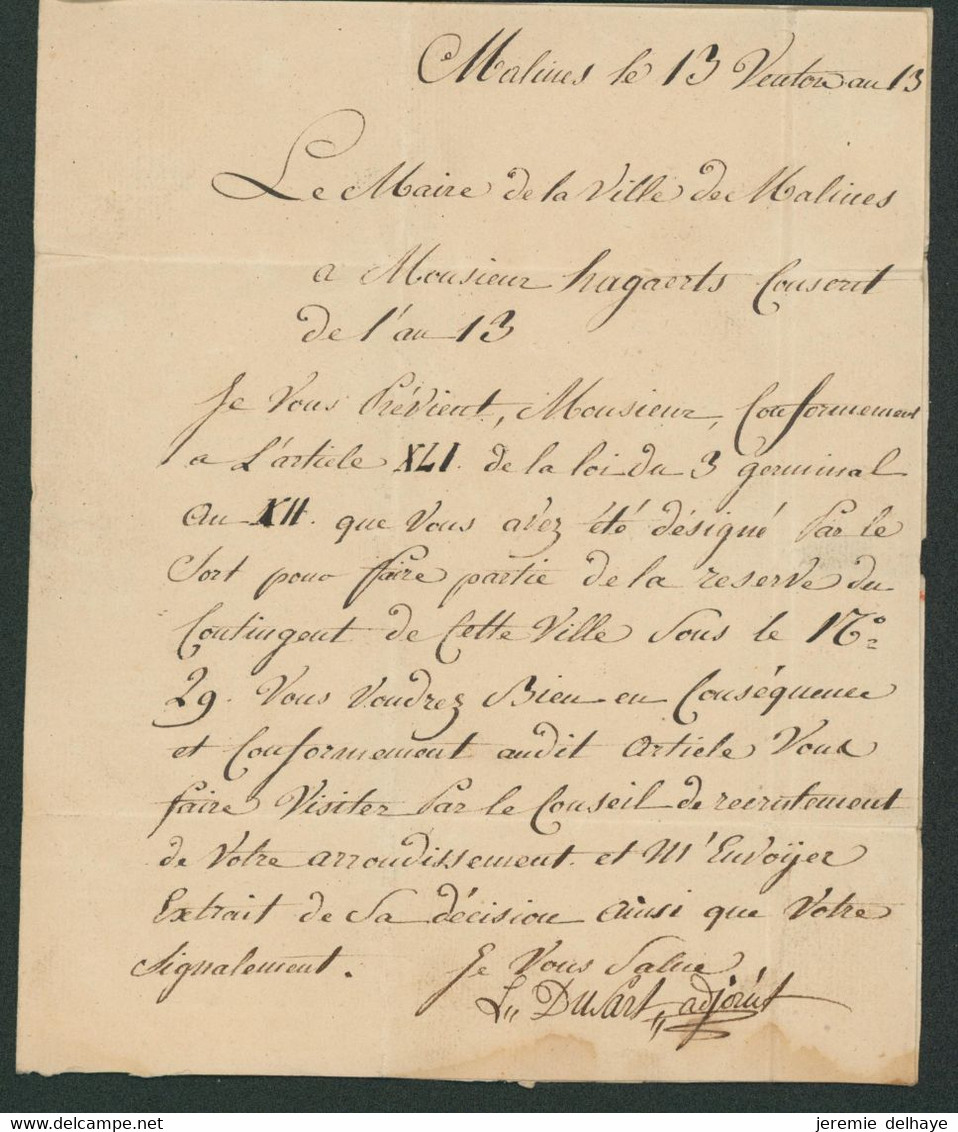 Malines le 13 Ventose an 13
Le Maire de la Ville de Malines
a Monsieur hagaerts Conscrit
de l'an 13
Je Vous Prévient, Monsieur, Conformement
a L'article XLI. de la loi du 3 germinal
an XII. que Vous avez été désigné Par le
Sort pour faire partie de la reserve du
Contingent de Cette Ville Sous le N°
29. Vous Voudrez Bien en Conséquence
et Conformement audit article Vous
faire Visiter Par le Conseil de recrutement
de Votre arrondissement. et M'Envoÿer
Extrait de Sa décision ainsi que Votre
Signalement. Je Vous Salue
L. Dusart, adjoint
jeremie delhaye